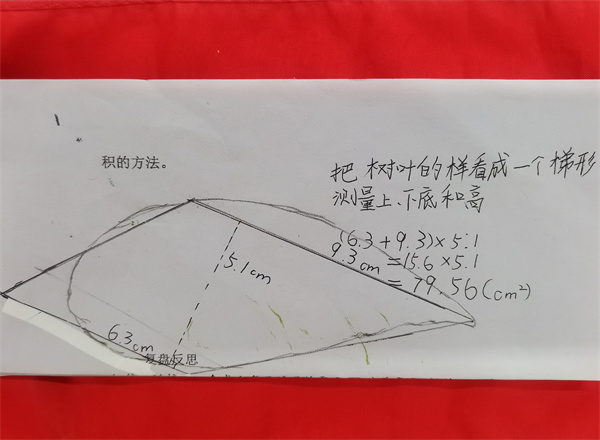 积的方法。
把树叶的样看成一个梯形
测量上、下底和高
(6.3+9.3)×5.1
=15.6×5.1
=79.56(cm²)
9.3cm
5.1cm
6.3cm
复盘反思